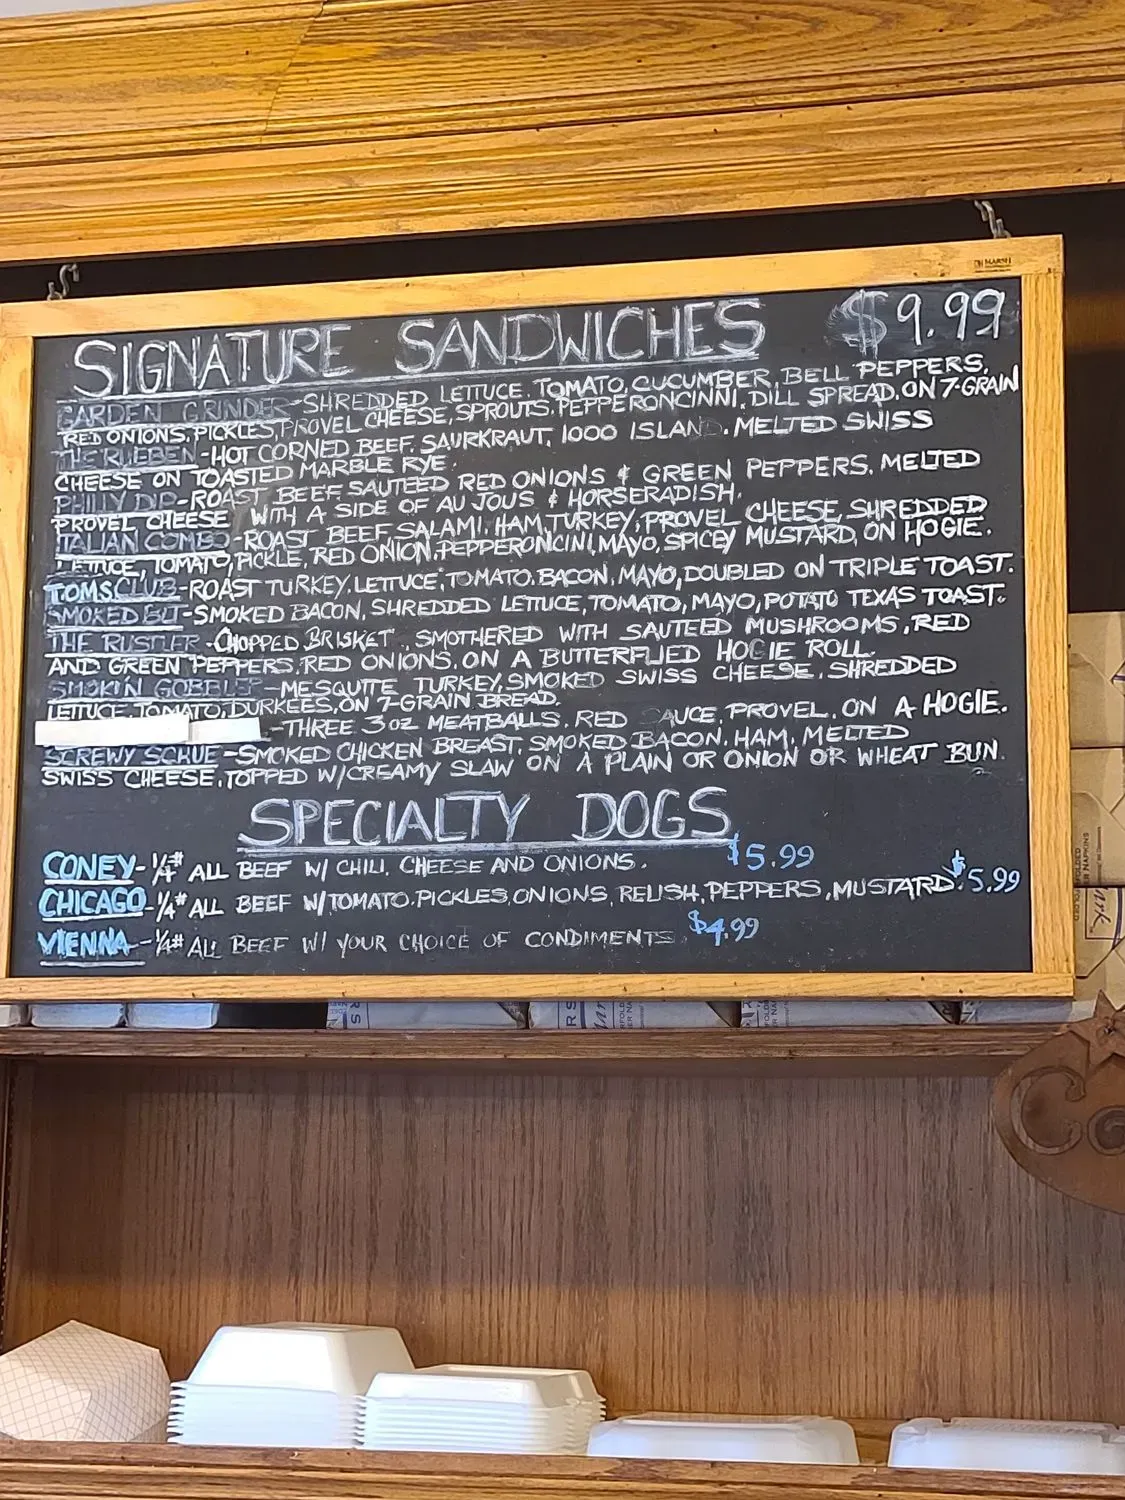 SIGNATURE SANDWICHES $9.99
GARDEN GRINDER-SHREDDED LETTUCE, TOMATO, CUCUMBER, BELL PEPPERS,
RED ONIONS, PICKLES, PROVEL CHEESE, SPROUTS, PEPPERONCINNI, DILL SPREAD, ON 7-GRAIN
THE RUEBEN-HOT CORNED BEEF, SAURKRAUT, 1000 ISLAND. MELTED SWISS
CHEESE ON TOASTED MARBLE RYE.
PHILLY DIP-ROAST BEEF SAUTEED RED ONIONS & GREEN PEPPERS, MELTED
PROVEL CHEESE WITH A SIDE OF AU JOUS & HORSERADISH.
ITALIAN COMBO-ROAST BEEF, SALAMI, HAM, TURKEY, PROVEL CHEESE, SHREDDED
LETTUCE, TOMATO, PICKLE, RED ONION, PEPPERONCINI, MAYO, SPICEY MUSTARD, ON HOGIE.
TOMS CLUB-ROAST TURKEY, LETTUCE, TOMATO, BACON, MAYO, DOUBLED ON TRIPLE TOAST.
SMOKED BLT-SMOKED BACON, SHREDDED LETTUCE, TOMATO, MAYO, POTATO TEXAS TOAST.
THE RUSTLER-CHOPPED BRISKET, SMOTHERED WITH SAUTEED MUSHROOMS, RED
AND GREEN PEPPERS, RED ONIONS, ON A BUTTERFLIED HOGIE ROLL.
SMOKIN GOBBLER-MESQUITE TURKEY, SMOKED SWISS CHEESE, SHREDDED
LETTUCE, TOMATO, DURKEES, ON 7-GRAIN BREAD.
-THREE 3oz MEATBALLS, RED AUCE, PROVEL, ON A HOGIE.
SCREWY SCRUE-SMOKED CHICKEN BREAST, SMOKED BACON, HAM, MELTED
SWISS CHEESE, TOPPED W/CREAMY SLAW ON A PLAIN OR ONION OR WHEAT BUN.
SPECIALTY DOGS
CONEY-1/4# ALL BEEF W/ CHILI, CHEESE AND ONIONS. $5.99
CHICAGO-1/4# ALL BEEF W/TOMATO, PICKLES, ONIONS, RELISH, PEPPERS, MUSTARD. $5.99
VIENNA-1/4# ALL BEEF W/ YOUR CHOICE OF CONDIMENTS $4.99
MARSH